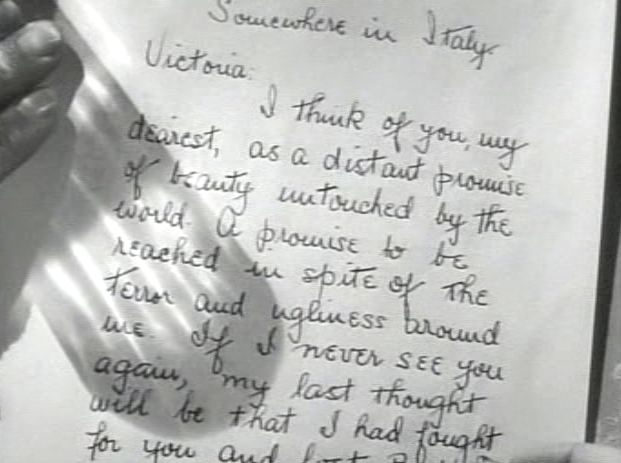 Somewhere in Italy
Victoria:
I think of you, my
dearest, as a distant promise
of beauty untouched by the
world. A promise to be
reached in spite of the
terror and ugliness around
me. If I never see you
again, my last thought
will be that I had fought
for you and lost